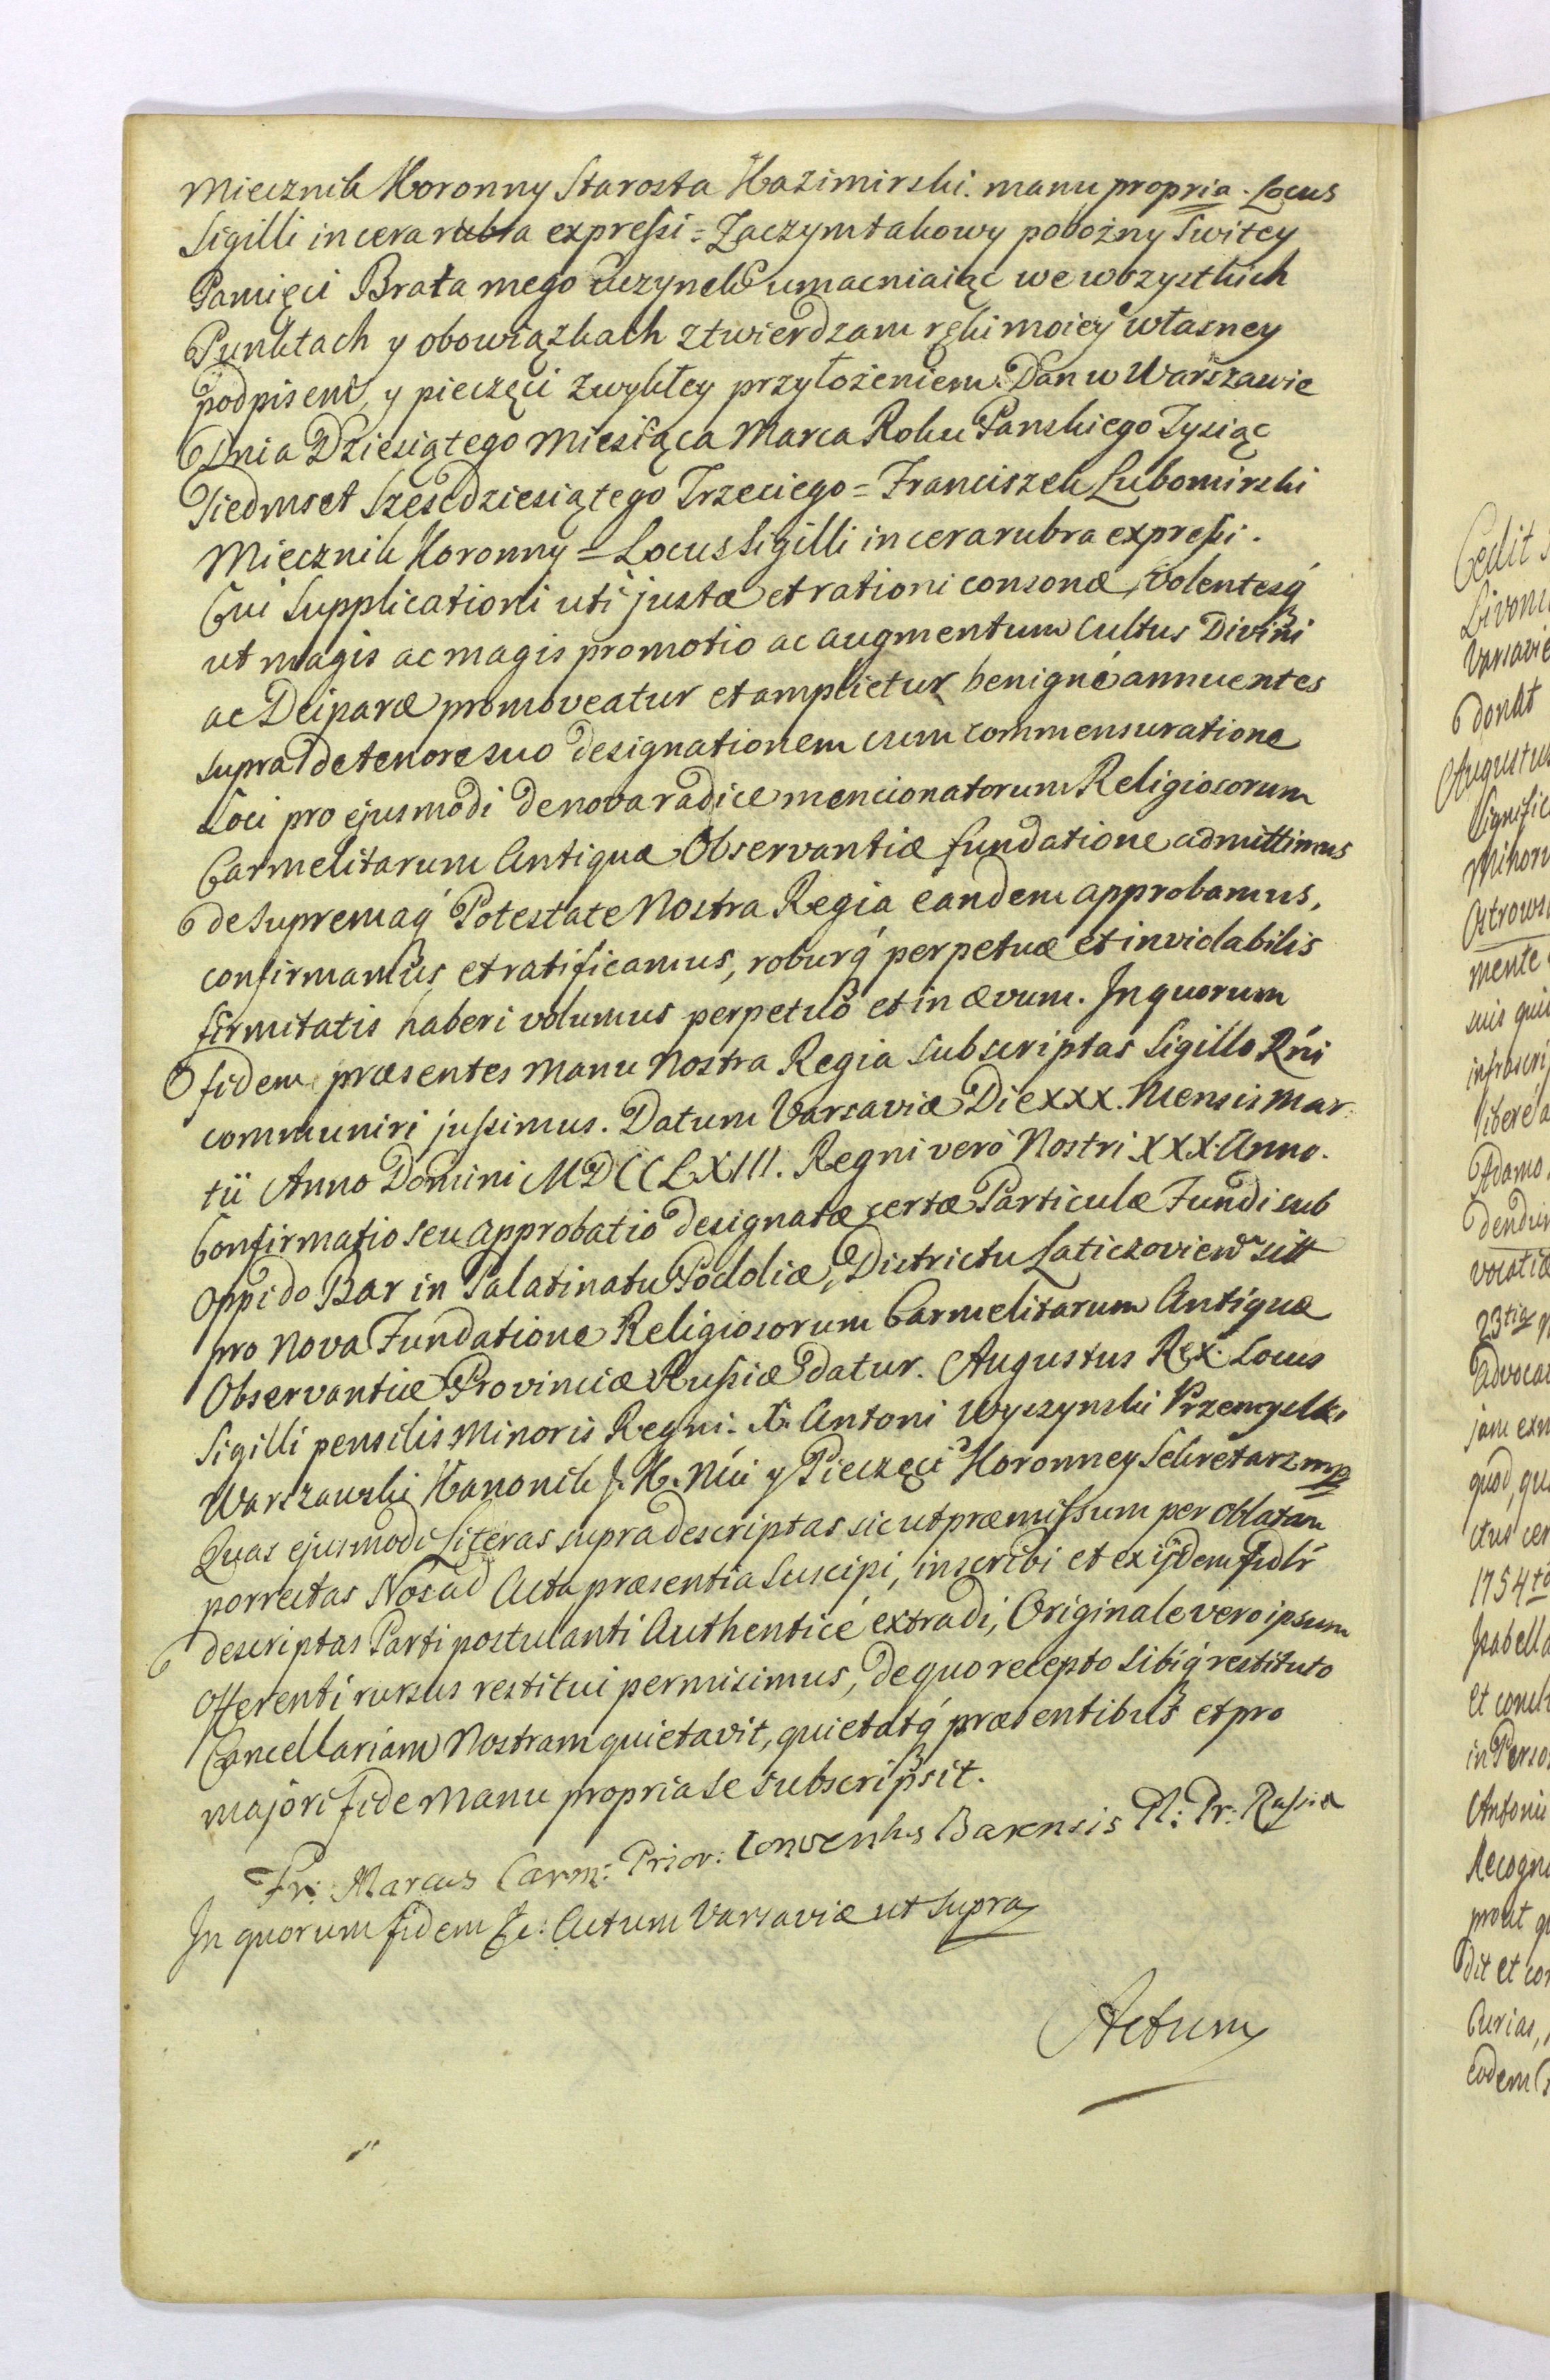 Miecznik Koronny Starosta Kazimirski. manu propria. Locus
Sigilli in cera rubra expressi = Zaczym takowy pobożny Switey
Pamięci Brata mego uczynek umacniaiąc we wszystkich
Punktach y obowiązkach ztwierdzam ręki moiey własney
podpisem, y pieczęci zwykłey przyłożeniem. Dan w Warszawie
Dnia Dziesiątego Miesiąca Marca Roku Panskiego Tysiąc
Siedmset Szescdziesiątego Trzeciego = Franciszek Lubomirski
Miecznik Koronny = Locus Sigilli in cera rubra expressi.
Cui Supplicationi uti justæ et rationi consonæ, volentesq́
ut magis ac magis promotio ac augmentum Cultus Divini
ac Deiparæ promoveatur et amplietur benigné annuentes
supra de tenore suo designationem cum commensuratione
Loci pro ejusmodi de nova radice mencionatorum Religiosorum
Carmelitarum Antiquæ Observantiæ fundatione admittimus
de Supremaq́ Potestate Nostra Regia eandem approbamus,
confirmamus, et ratificamus, roburq́ perpetuæ et inviolabilis
firmitatis haberi volumus perpetuò et in ævum. In quorum
fidem præsentes Manu Nostra Regia subscriptas Sigillo Rńi
communiri jussimus. Datum Varsaviæ Die XXX. Mensis Mar
tii Anno Domini MDCCLXIII. Regni verò Nostri XXX. Anno.
Confirmatio seu Approbatio designatæ certæ Particulæ Fundi sub
Oppido Bar in Palatinatu Podoliæ, Districtu Laticzovien sitt
pro Nova Fundatione Religiosorum Carmelitarum Antiquæ
Observantiæ Provinciæ Russiæ datur. Augustus Rex. Locus
Sigilli pensilis Minoris Regni. X. Antoni Wyczynski Przemyslki
Warszawski Kanonik J. K. Mći y Pieczęci Koronney Sekretarz mp
Quas ejusmodi Literas supra descriptas sic ut præmissum per Oblatam
porrectas Nos ad Acta præsentia suscipi, inscribi et ex iisdem fidlr
descriptas Parti postulanti Authenticé extradi, Originale vero ipsum
Offerenti rursus restitui permisimus, de quo recepto sibiq́ restituto
Cancellariam Nostram quietavit, quietatq́ præsentibus et pro
majori fide Manu propria se subscripsit.
Fr: Marcus Carm: Prior: Conventus Barensis Pr: Russiæ
In quorum fidem &c: Actum Varsaviæ ut supra
Actum
Cedit
Varsavie
donat
Augustus
Ostrows
mente
suis qui
infrascri
liberé a
Adamo
vocatiæ
23tia
Advocat
jam exn
quod, qu
1754to
Isabella
in Perso
Antoni
Recogn
prout q
dit et con
Curias,
eodem